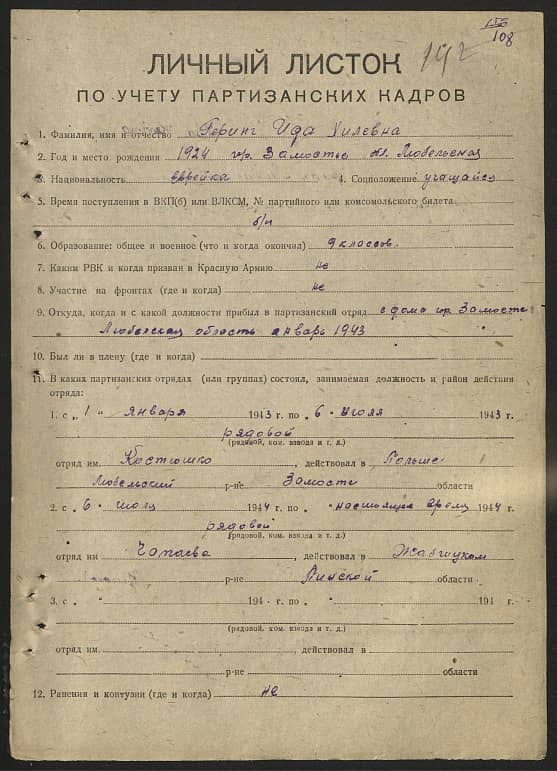 108
192
ЛИЧНЫЙ ЛИСТОК
ПО УЧЕТУ ПАРТИЗАНСКИХ КАДРОВ
1. Фамилия, имя и отчество Геринг Ида Хилевна
2. Год и место рождения 1924 гор. Замостье об. Любельская
3. Национальность еврейка 4. Соцположение учащийся
5. Время поступления в ВКП(б) или ВЛКСМ, № партийного или комсомольского билета
б/п
6. Образование: общее и военное (что и когда окончил) 9 классов
7. Каким РВК и когда призван в Красную Армию не
8. Участие на фронтах (где и когда) не
9. Откуда, когда и с какой должности прибыл в партизанский отряд с дома гор. Замосте
Любельская область январь 1943
10. Был ли в плену (где и когда)
11. В каких партизанских отрядах (или группах) состоял, занимаемая должность и район действия
отряда:
1. с „1“ января 1943 г. по 6 июля 1943 г.
рядовой
(рядовой, ком. взвода и т. д.)
отряд им. Костюшко, действовал в Польше
Любельский р-не Замости области
2. с 6 июля 1944 г. по настоящее время 1944 г.
рядовой
(рядовой, ком. взвода и т. д.)
отряд им Чапаева, действовал в
р-не Пинской области
3. с 194 г. по 194 г.
(рядовой, ком. взвода и т. д.)
отряд им. действовал в
р-не области
12. Ранения и контузии (где и когда) не